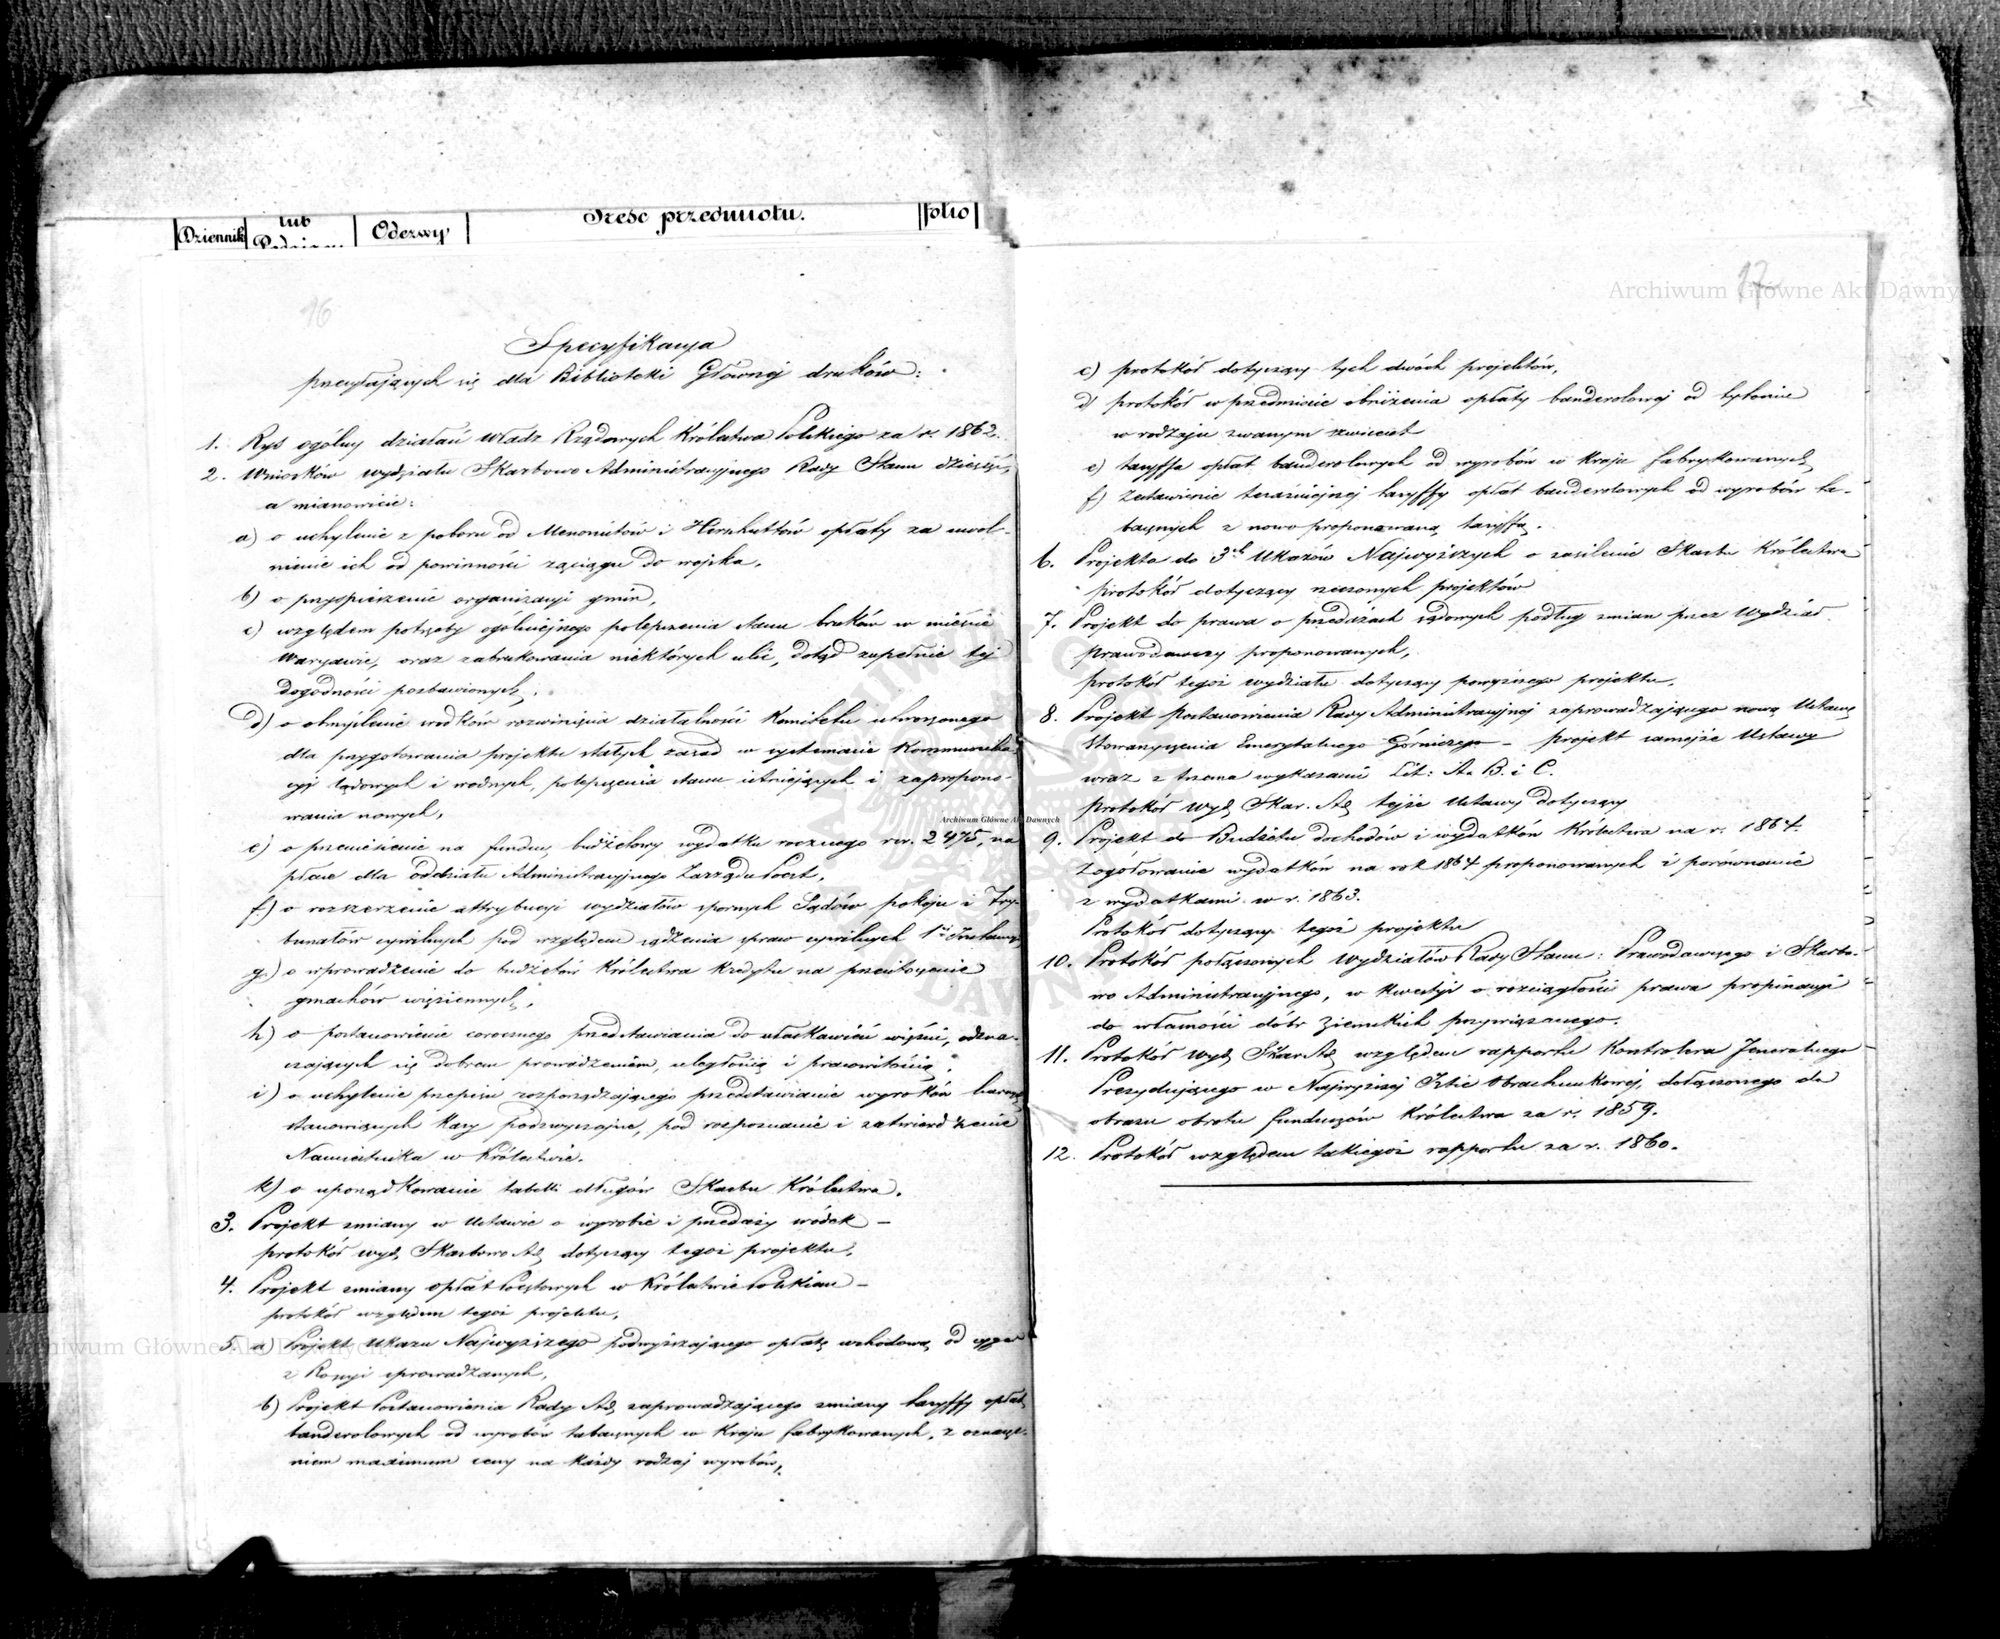 Dziennik
lub
Odezwy
Treść przedmiotu.
folio
16
Specyfikacya
przesyłających się dla Biblioteki Głównej druków:
1. Rys ogólny działań Władz Rządowych Królestwa Polskiego za r. 1862.
2. Wniosków wydziału Skarbowo Administracyjnego Rady Stanu dziesięć,
a mianowicie:
a) o uchylenie z poboru od Menonitów i Hernhuttów opłaty za uwol-
nienie ich od powinności zaciągu do wojska,
b) o przyspieszenie organizacyi gmin,
c) względem potrzeby ogólniejszego polepszenia stanu bruków w mieście
Warszawie, oraz zabrukowania niektórych ulic, dotąd zupełnie tej
dogodności pozbawionych,
d) o obmyślenie środków rozwinięcia działalności Komitetu utworzonego
dla przygotowania projektu stałych zasad w systemacie Kommunika
cyj lądowych i wodnych, polepszenia stanu istniejących i zapropono-
wania nowych,
e) o przeniesienie na fundusz budżetowy wydatku rocznego rsr. 2475, na
płace dla oddziału Administracyjnego Zarządu Poczt,
f) o rozszerzenie attrybucyi wydziałów spornych Sądów pokoju i Try-
bunałów cywilnych pod względem sądzenia spraw cywilnych 1éj Instancyi
g) o wprowadzenie do budżetów Królestwa kredytu na przeistoczenie
gmachów więziennych,
h) o postanowienie corocznego przedstawiania do ułaskawień więźni, odzna-
czających się dobrem prowadzeniem, uległością i pracowitością,
i) o uchylenie przepisu rozporządzającego przedstawianie wyroków
stanowiących kary podzwyczajne, pod rozpoznanie i zatwierdzenie
Namiestnika w Królestwie.
k) o uporządkowanie tabelli długów Skarbu Królestwa.
3. Projekt zmiany w Ustawie o wyrobie i przedaży wódek –
protokół wydz. Skarbowo Ad. dotyczący tegoż projektu,
4. Projekt zmiany Opłat Pocztowych w Królestwie Polskiem –
protokół względem tegoż projektu,
5. a) Projekt Ukazu Najwyższego podwyższającego opłatę wchodową od cygar
z Rossyi sprowadzanych,
b) Projekt Postanowienia Rady Ad. zaprowadzającego zmiany taryffy opłat
banderolowych od wyrobów tabacznych w Kraju fabrykowanych, z oznacze-
niem maximum ceny na każdy rodzaj wyrobów,
17
c) protokół dotyczący tych dwóch projektów,
d) protokół w przedmiocie obniżenia opłaty banderolowej od tytoniu
w rodzaju zwanym
e) taryffa opłat banderolowych od wyrobów w Kraju fabrykowanych
f) Zestawienie teraźniejszej taryffy opłat banderolowych od wyrobów ta-
bacznych z nowo proponowaną taryffą.
6. Projekta do 3ch Ukazów Najwyższych o zasilenie Skarbu Królestwa
protokół dotyczący rzeczonych projektów
7. Projekt do prawa o przedażach sądowych podług zmian przez Wydział
Prawodawczy proponowanych,
protokół tegoż wydziału dotyczący powyższego projektu,
8. Projekt Postanowienia Rady Administracyjnej zaprowadzającego nową Ustawę
Stowarzyszenia Emerytalnego Górniczego – projekt samejże Ustawy
wraz z trzema wykazami Lit: A. B. i C.
protokół Wydz. Skar. Ad. tejże Ustawy dotyczący
9. Projekt do Budżetu dochodów i wydatków Królestwa na r. 1864.
Zogółowanie wydatków na rok 1864 proponowanych i porównanie
z wydatkami w r. 1863.
Protokół dotyczący tegoż projektu
10. Protokół połączonych Wydziałów Rady Stanu: Prawodawczego i Skarbo-
wo Administracyjnego, w kwestyi o rozciągłości prawa propinacyi
do własności dóbr ziemskich przywiązanego.
11. Protokół Wydz. Skar. Ad. względem rapportu Kontrolera Jeneralnego
Prezydującego w Najwyższej Izbie Obrachunkowej, dołączonego do
obrazu obrotu funduszów Królestwa za r. 1859.
12. Protokół względem takiegoż rapportu za r. 1860.
Archiwum Główne Akt Dawnych
Archiwum Główne Akt Dawnych
Archiwum Główne Akt Dawnych